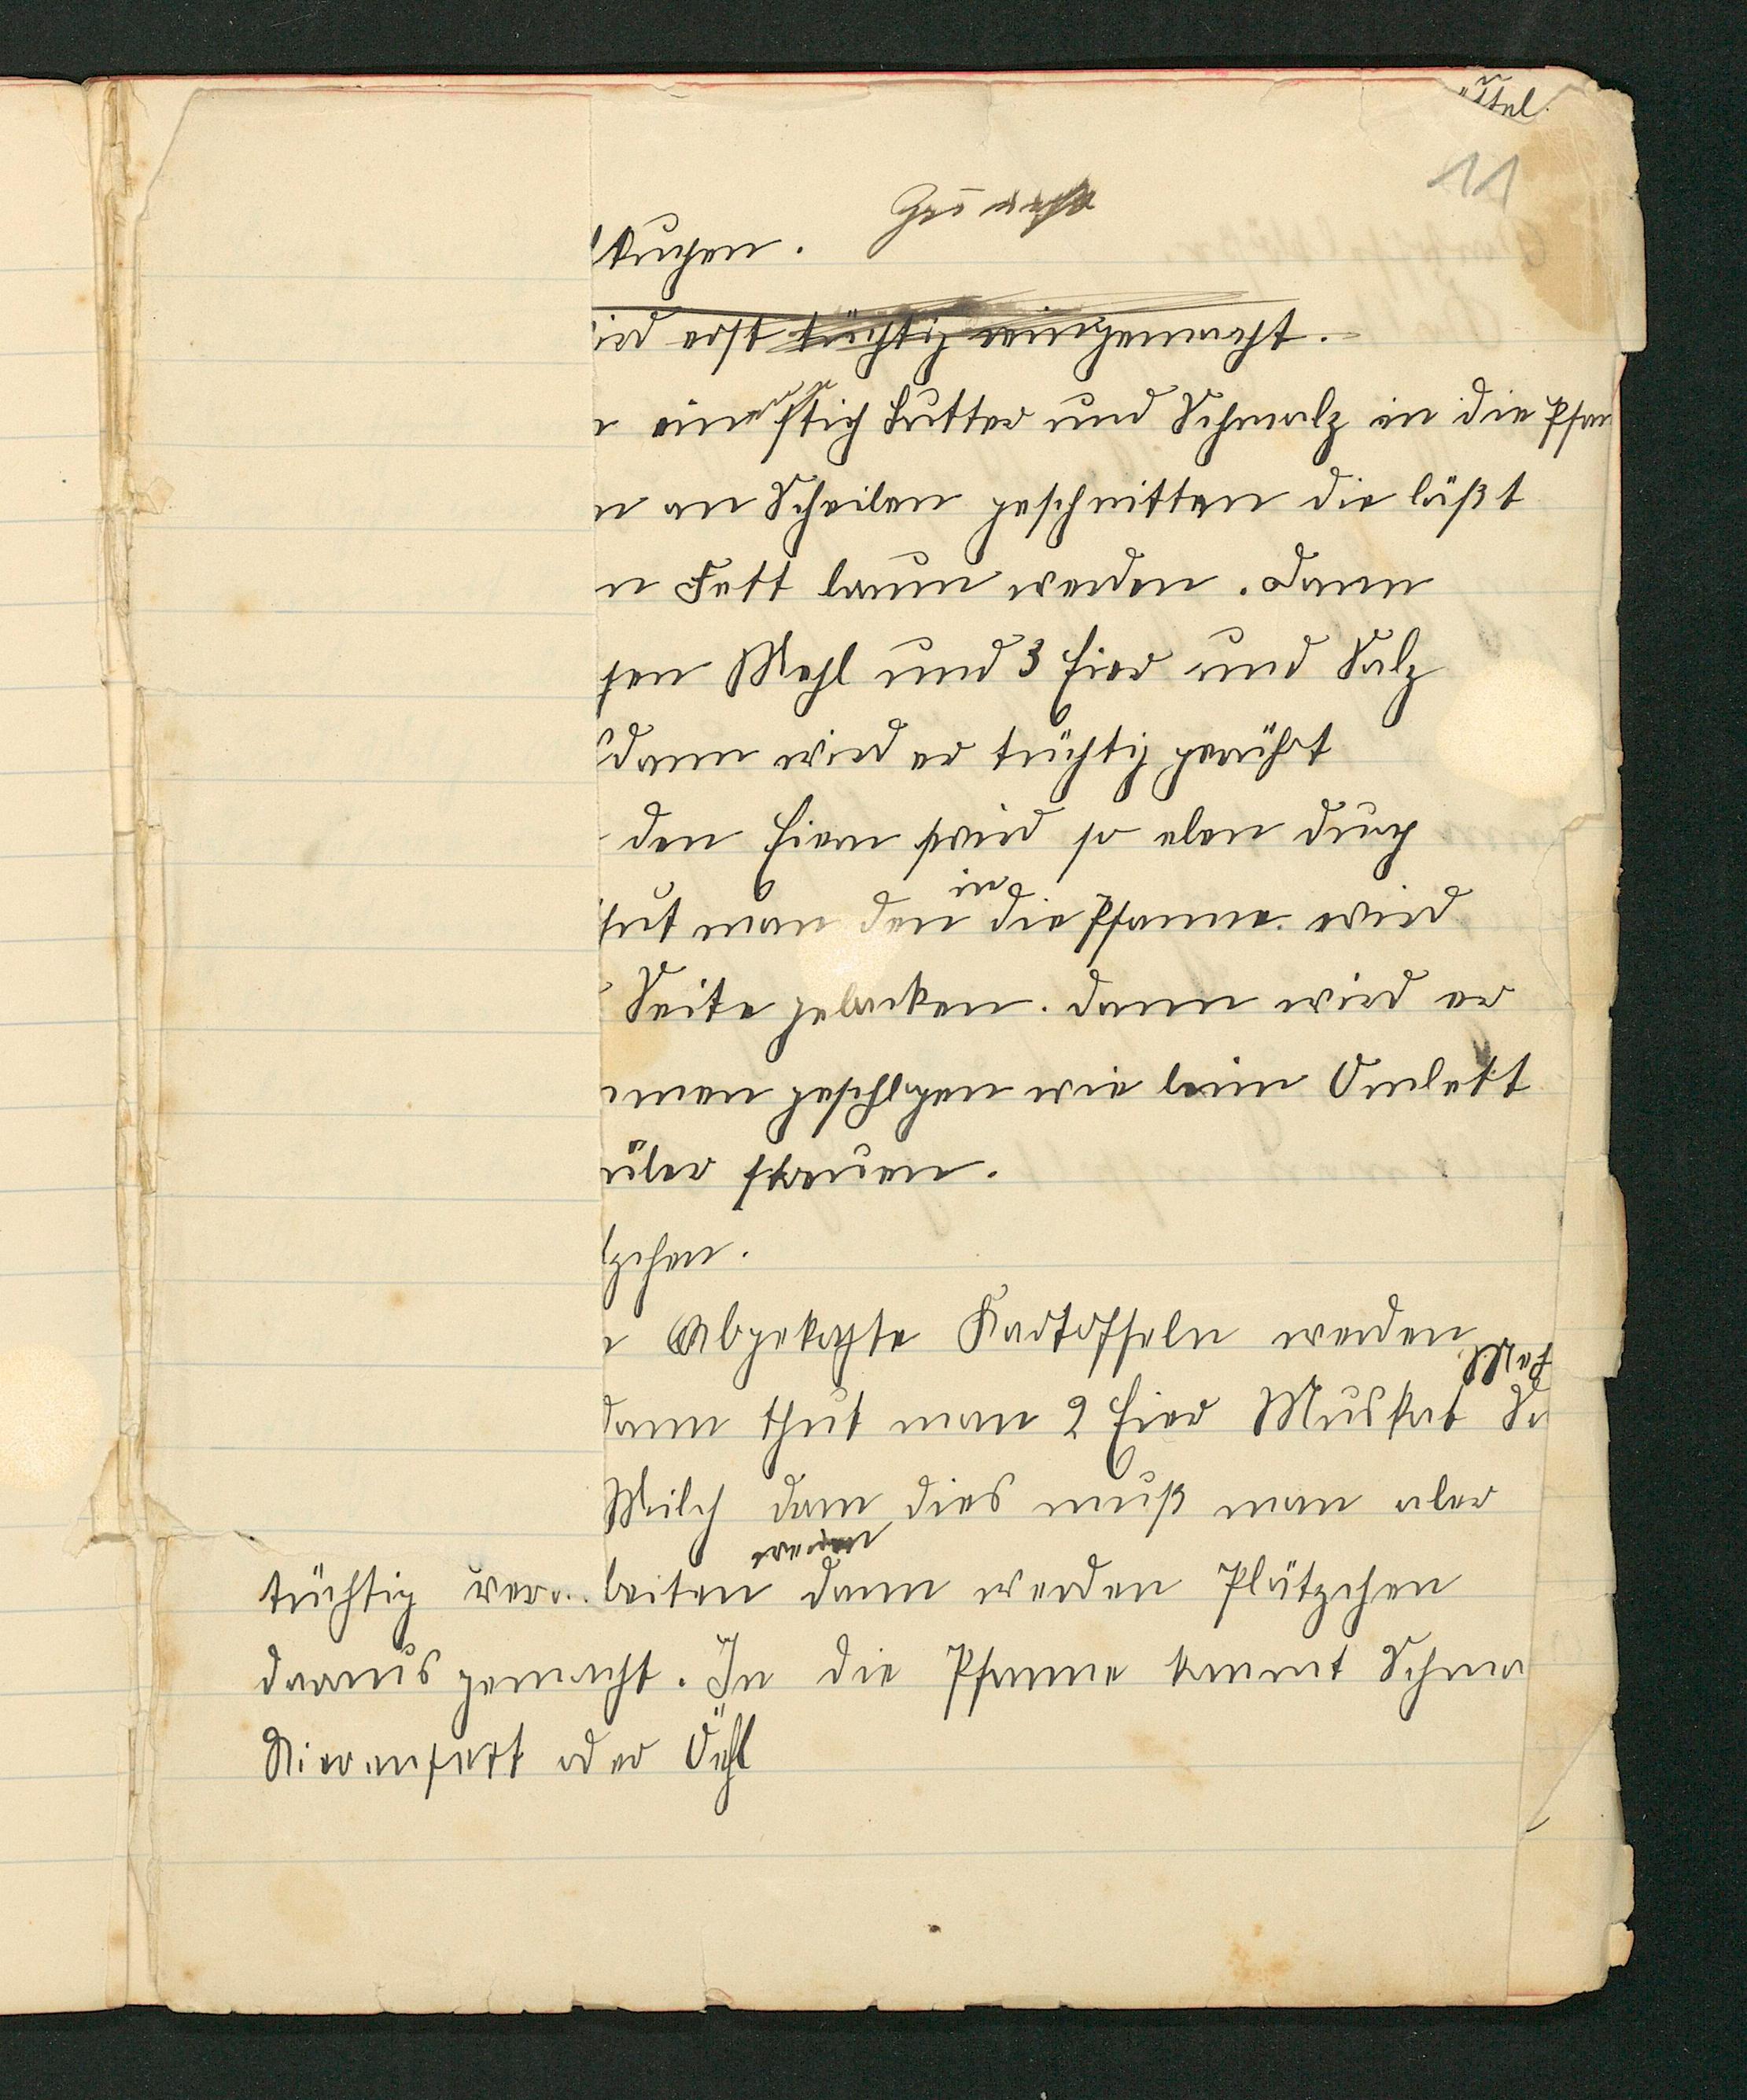 11
kuchen.
ird erst tüchtig eingemacht.
ein stich butter und Schmalz in die Pfan
n an Scheiben geschnitten die läßt
n Fett braun werden. dann
sen Mehl und 3 Eier und Salz
dann wird er tüchtig gerührt
den Eiern wird so eben durch
hut man den in die Pfanne. wird
Seite gebacken. dann wird er
men geschlgen wie beim Omlett
über streuen.
zchen.
Abgekochte Kartoffeln werden
Meh
dann thut man 2 Eier Muskat Sa
Milch dann dies muß man aber
tüchtig verarbeiten dann werden Plätzchen
daraus gemacht. In die Pfanne kommt Schma
Nierenfett oder Öehl